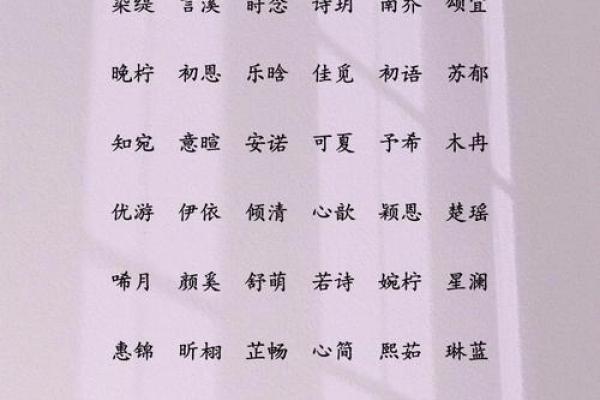 言溪 诗玥 南乔 颂宜
晚柠 初恩 乐晗 佳觅 初语 苏郁
知宛 意暄 安诺 可夏 予希 木冉
优游 伊依 倾清 心歆 颖恩 楚瑶
唏月 颜奚 舒萌 若诗 婉柠 星澜
惠锦 昕栩 芷畅 心简 熙茹 琳蓝